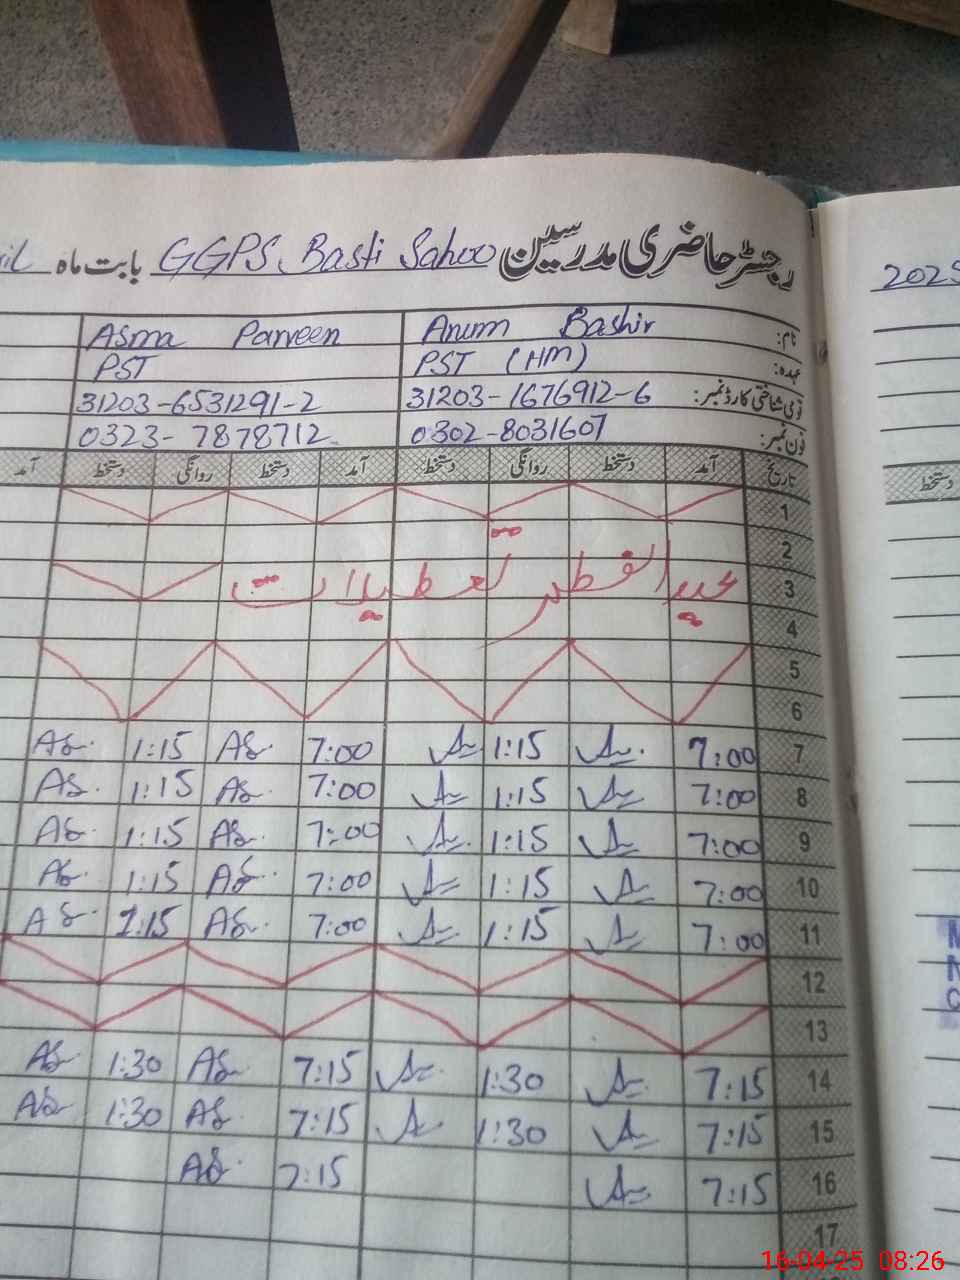 رجسٹر حاضری مدرسین GGPS Basti Sahoo بابت ماہ
2025
نام: Anum Bashir Asma Parveen
عہدہ: PST (HM) PST
قومی شناختی کارڈ نمبر: 31203-1676912-6 31203-6531291-2
فون نمبر: 0302-8031607 0323-7878712
تاریخ آمد دستخط روانگی دستخط آمد دستخط روانگی دستخط آمد
دستخط
1
2
3 عید الفطر تعطیلات
4
5
6
7 7:00 1:15 7:00 AS. 1:15 AS.
8 7:00 1:15 7:00 AS. 1:15 AS.
9 7:00 1:15 7:00 AS. 1:15 AS.
10 7:00 1:15 7:00 AS. 1:15 AS.
11 7:00 1:15 7:00 AS. 1:15 AS.
12
13
14 7:15 1:30 7:15 AS. 1:30 AS
15 7:15 1:30 7:15 AS. 1:30 AS
16 7:15 7:15 AS.
17
16-04-25 08:26